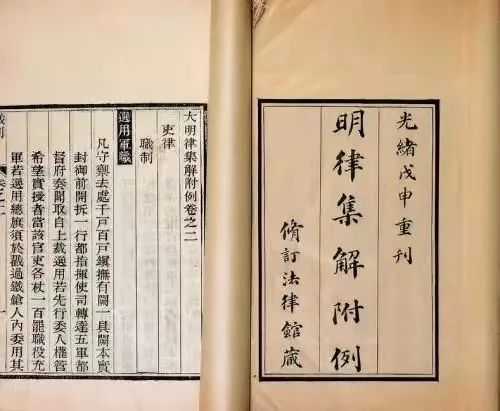 光緒戊申重刊
明律集解附例
脩訂法律館藏
大明律集解附例卷之二
吏律
職制
選用軍職
凡守禦去處千戶百戶鎮撫有闕一具闕本實
封御前開拆一行都指揮使司轉達五軍都
督府奏聞取自上裁選用若先行委人權管
希望實授者當該官吏各杖一百罷職役充
軍若選用總旗須於戳過鐵鎗人內委用其
卷之二
一